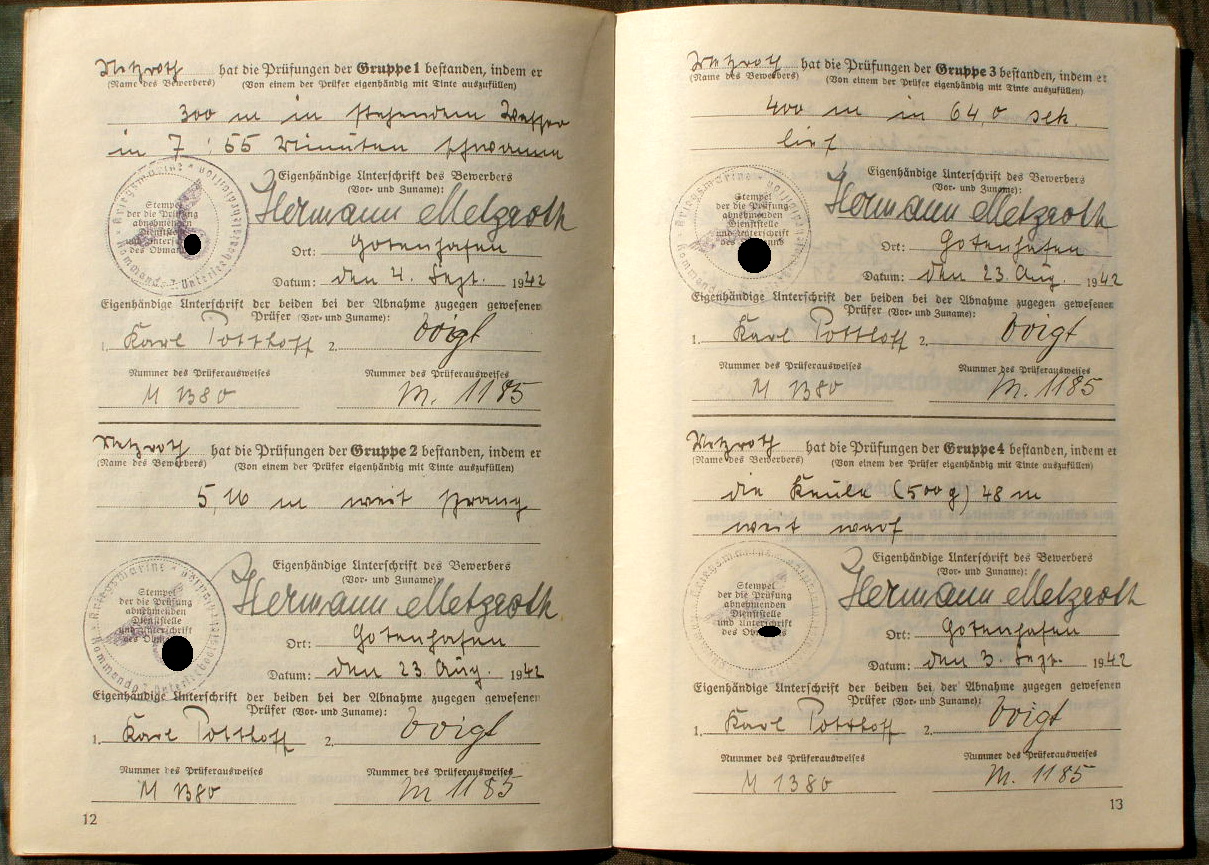 Metzroth hat die Prüfungen der Gruppe 1 bestanden, indem er
(Name des Bewerbers) (Von einem der Prüfer eigenhändig mit Tinte auszufüllen)
300 m in stehendem Wasser
in 7 : 55 Minuten schwamm
Eigenhändige Unterschrift des Bewerbers
(Vor- und Zuname):
Stempel
der die Prüfung
abnehmenden
Dienststelle
und Unterschrift
des Obmanns
Kriegsmarine
Hermann Metzroth
Ort: Gotenhafen
Datum: den 4. Sept. 1942
Eigenhändige Unterschrift der beiden bei der Abnahme zugegen gewesenen
Prüfer (Vor- und Zuname):
1. Karl Potthoff 2. Voigt
Nummer des Prüferausweises Nummer des Prüferausweises
M 1380 M. 1185
Metzroth hat die Prüfungen der Gruppe 2 bestanden, indem er
(Name des Bewerbers) (Von einem der Prüfer eigenhändig mit Tinte auszufüllen)
5,16 m weit sprang
Eigenhändige Unterschrift des Bewerbers
(Vor- und Zuname):
Stempel
der die Prüfung
abnehmenden
Dienststelle
und Unterschrift
des Obmanns
Kriegsmarine
Hermann Metzroth
Ort: Gotenhafen
Datum: den 23. Aug. 1942
Eigenhändige Unterschrift der beiden bei der Abnahme zugegen gewesenen
Prüfer (Vor- und Zuname):
1. Karl Potthoff 2. Voigt
Nummer des Prüferausweises Nummer des Prüferausweises
M 1380 M 1185
12
Metzroth hat die Prüfungen der Gruppe 3 bestanden, indem er
(Name des Bewerbers) (Von einem der Prüfer eigenhändig mit Tinte auszufüllen)
400 m in 64,0 sek.
lief
Eigenhändige Unterschrift des Bewerbers
(Vor- und Zuname):
Stempel
der die Prüfung
abnehmenden
Dienststelle
und Unterschrift
des Obmanns
Kriegsmarine
Hermann Metzroth
Ort: Gotenhafen
Datum: den 23. Aug. 1942
Eigenhändige Unterschrift der beiden bei der Abnahme zugegen gewesenen
Prüfer (Vor- und Zuname):
1. Karl Potthoff 2. Voigt
Nummer des Prüferausweises Nummer des Prüferausweises
M 1380 M. 1185
Metzroth hat die Prüfungen der Gruppe 4 bestanden, indem er
(Name des Bewerbers) (Von einem der Prüfer eigenhändig mit Tinte auszufüllen)
die Keule (500g) 48 m
weit warf
Eigenhändige Unterschrift des Bewerbers
(Vor- und Zuname):
Stempel
der die Prüfung
abnehmenden
Dienststelle
und Unterschrift
des Obmanns
Kriegsmarine
Hermann Metzroth
Ort: Gotenhafen
Datum: den 3. Sept. 1942
Eigenhändige Unterschrift der beiden bei der Abnahme zugegen gewesenen
Prüfer (Vor- und Zuname):
1. Karl Potthoff 2. Voigt
Nummer des Prüferausweises Nummer des Prüferausweises
M 1380 M. 1185
13